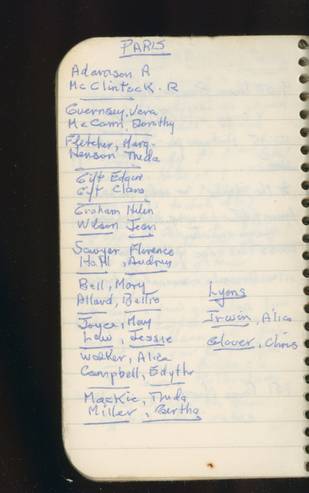 PARIS
Adamson R
McClintock. R
Guernsey, Vera
McCann, Dorothy
Fletcher, Marg.
Henson Theda
Gift Edgar
Gift Clara
Graham Helen
Wilson Jean
Sawyer Florence
Audrey
Bell, Mary
Allard, Bellie
Joyce, May
Law, Jessie
Walker, Alice
Campbell, Edythe
Mackie, Theda
Miller, Bertha
Lyons
Irwin, Alice
Glover, Chris